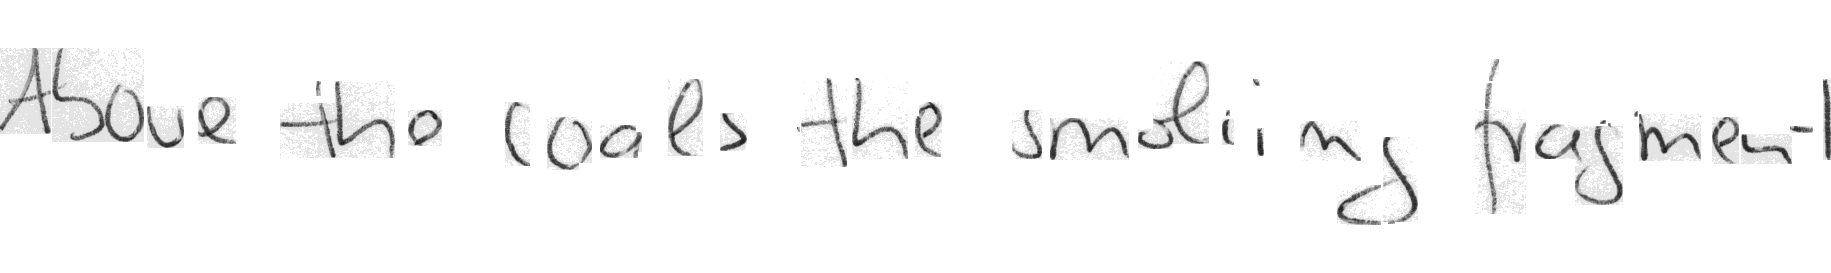 Above the coals the smoking fragment